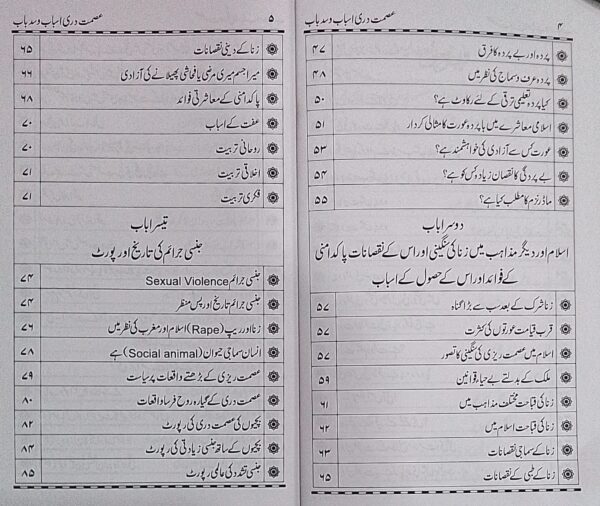 ۴
پردہ اور بے پردہ کا فرق ۴۷
پردہ عرف وسماج کی نظر میں ۴۸
کیا پردہ تعلیمی ترقی کے لئے رکاوٹ ہے؟ ۵۰
اسلامی معاشرے میں باپردہ عورت کا مثالی کردار ۵۱
عورت کس سے آزادی کی خواہشمند ہے؟ ۵۳
بے پردگی کا نقصان زیادہ کس کو ہے؟ ۵۴
ماڈرنزم کا مطلب کیا ہے؟ ۵۵
دوسرا باب
اسلام اور دیگر مذاہب میں زنا کی سنگینی اور اس کے نقصانات پاکدامنی
کے فوائد اور اس کے حصول کے اسباب
زنا شرک کے بعد سب سے بڑا گناہ ۵۷
قرب قیامت عورتوں کی کثرت ۵۷
اسلام میں عصمت ریزی کی سنگینی کا تصور ۵۷
ملک کے بدلتے بے حیا قوانین ۵۹
زنا کی قباحت مختلف مذاہب میں ۶۱
زنا کی قباحت اسلام میں ۶۲
زنا کے سماجی نقصانات ۶۳
زنا کے طبی کے نقصانات ۶۵
عصمت دری اسباب وسد باب ۵
زنا کے دینی نقصانات ۶۵
میرا جسم میری مرضی یا فحاشی پھیلانے کی آزادی ۶۶
پاکدامنی کے معاشرتی فوائد ۶۸
عفت کے اسباب ۷۰
روحانی تربیت ۷۰
اخلاقی تربیت ۷۱
فکری تربیت ۷۱
تیسرا باب
جنسی جرائم کی تاریخ اور رپورٹ
جنسی جرائم Sexual Violence ۷۴
جنسی جرائم تاریخ اور پس منظر ۷۴
زنا اور ریپ (Rape) اسلام اور مغرب کی نظر میں ۷۶
انسان سماجی حیوان (Social animal) ہے ۷۸
عصمت ریزی کے بڑھتے واقعات پر سیاست ۷۹
عصمت دری کے گیارہ روح فرسا واقعات ۸۰
بچیوں کی عصمت دری کی رپورٹ ۸۲
بچیوں کے ساتھ جنسی زیادتی کی رپورٹ ۸۴
جنسی تشدد کی عالمی رپورٹ ۸۵